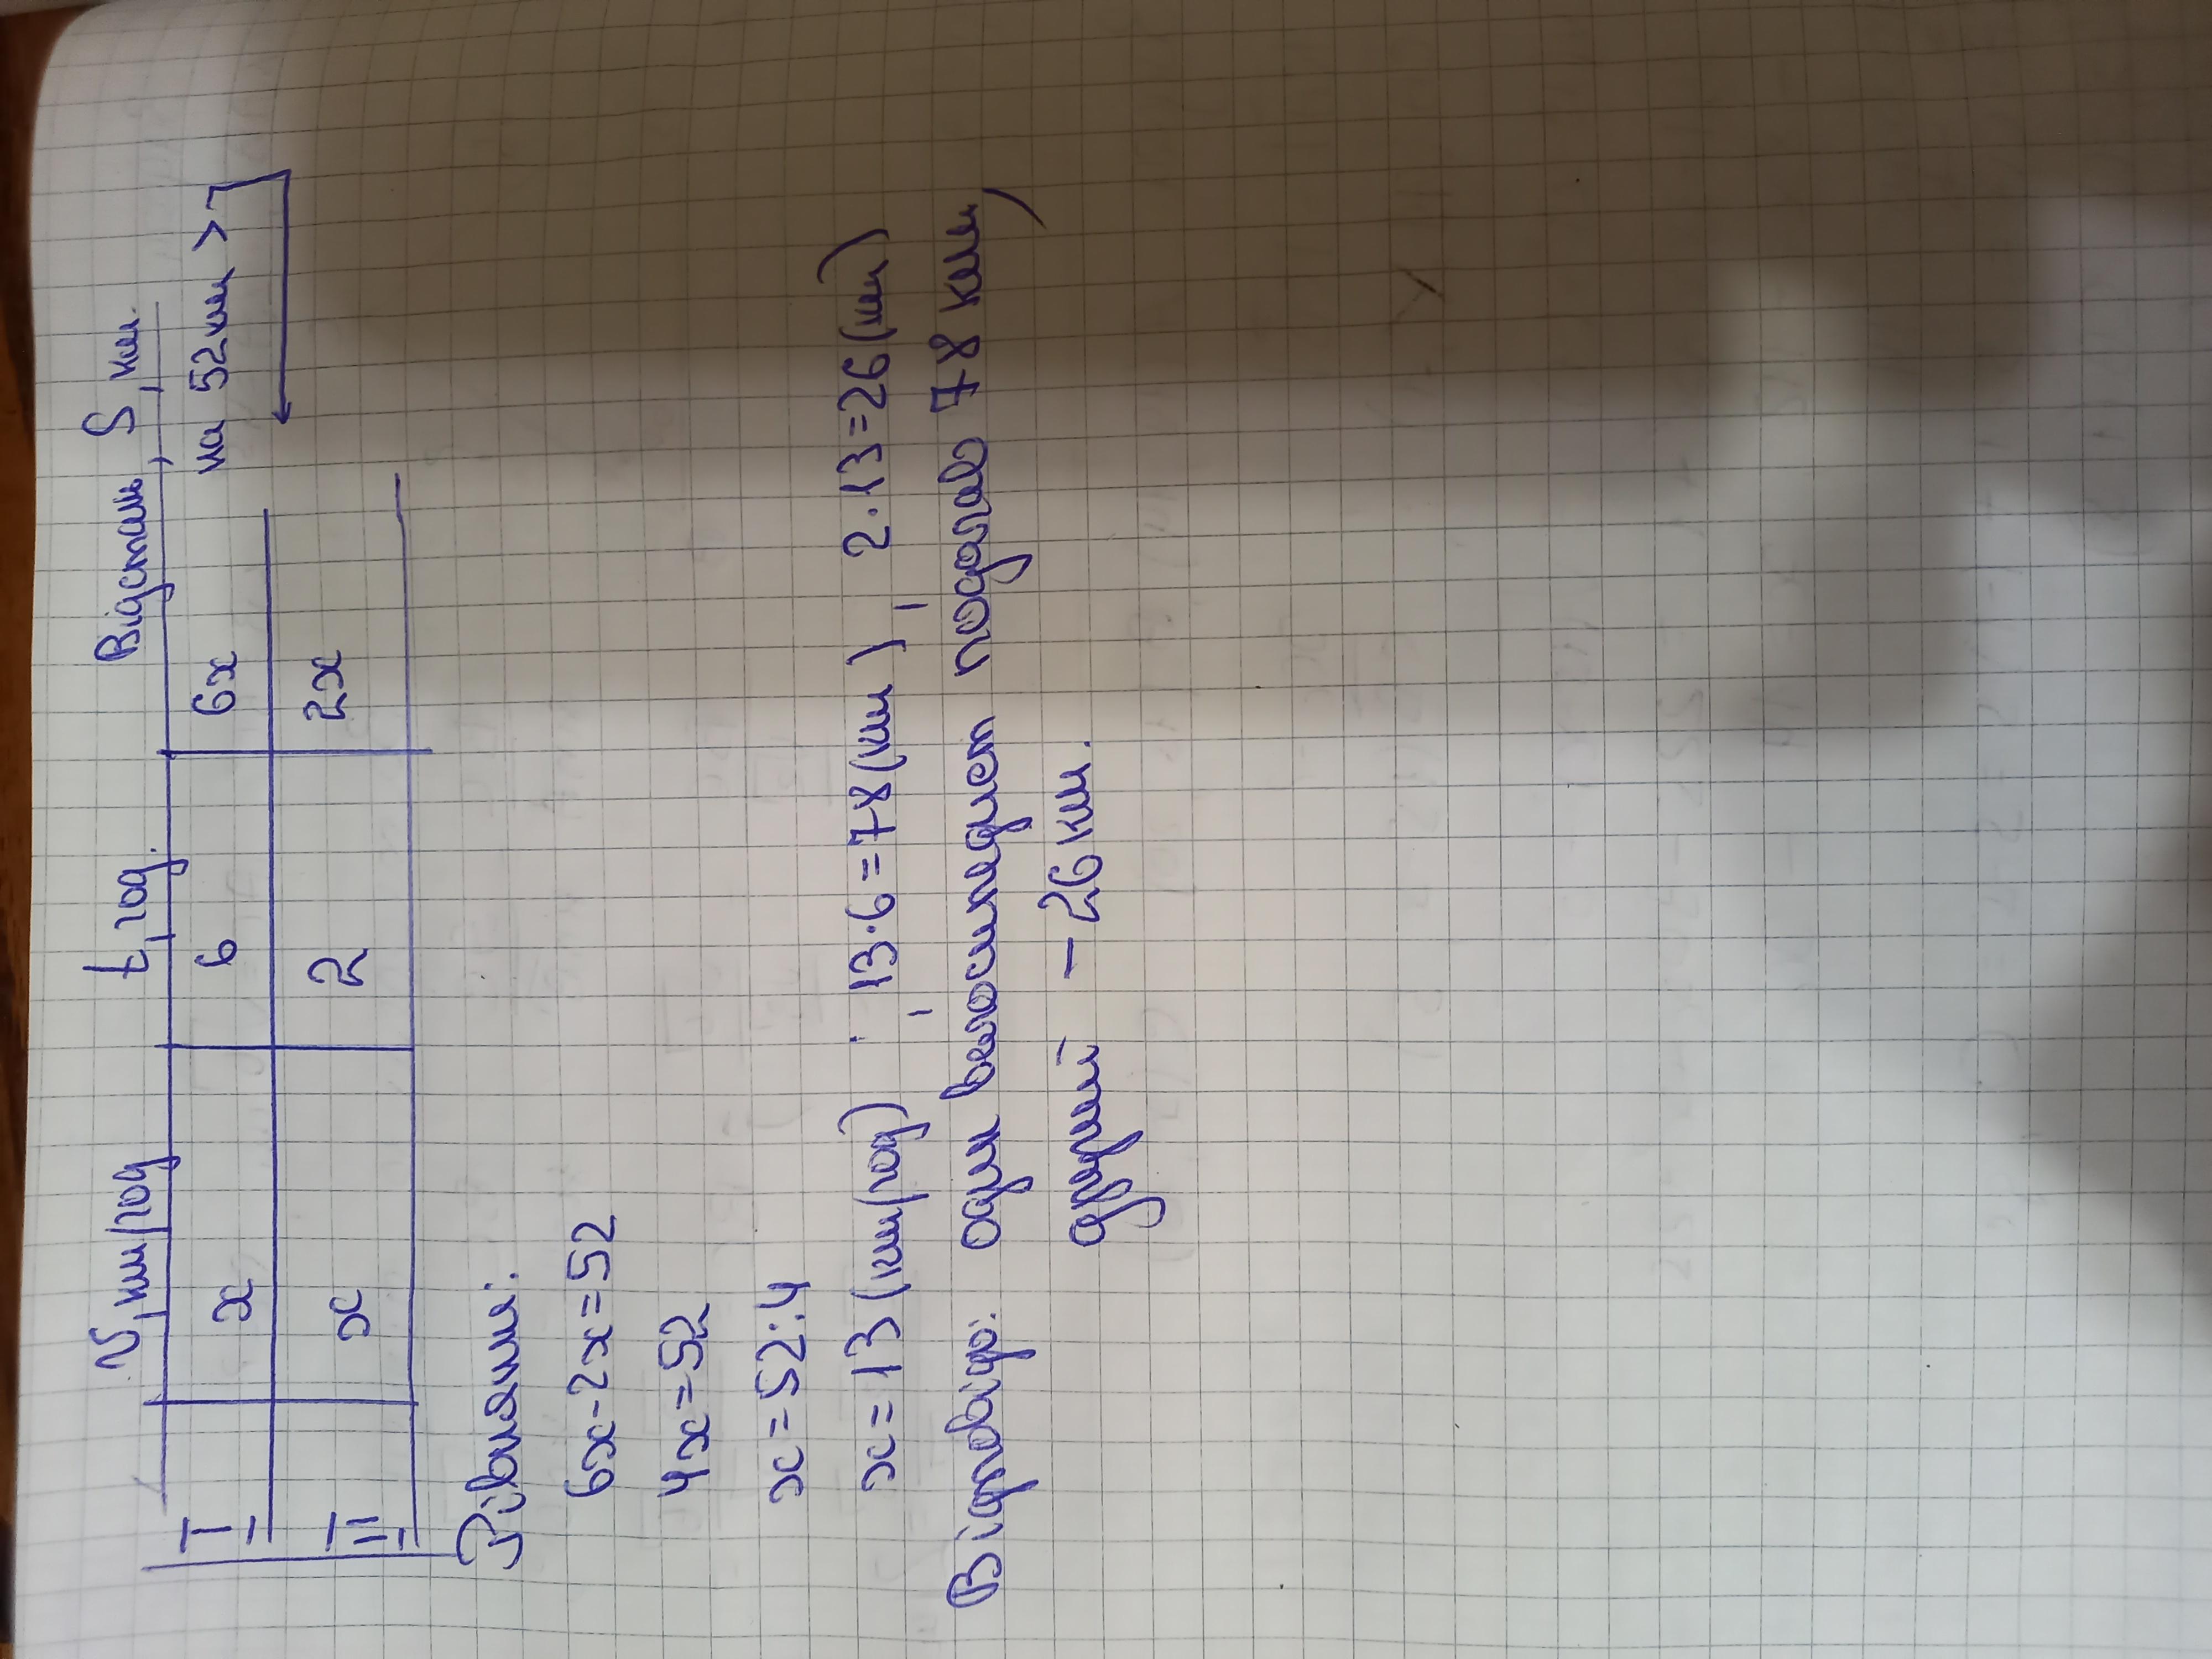 V, км/год t, год. Відстань, S, км.
I x 6 6x на 52км >
II x 2 2x
Рівняння:
6x-2x=52
4x=52
x=52:4
x=13 (км/год) ; 13·6=78(км) ; 2·13=26(км)
Відповідь: один велосипедист подолав 78 км,
другий – 26 км.